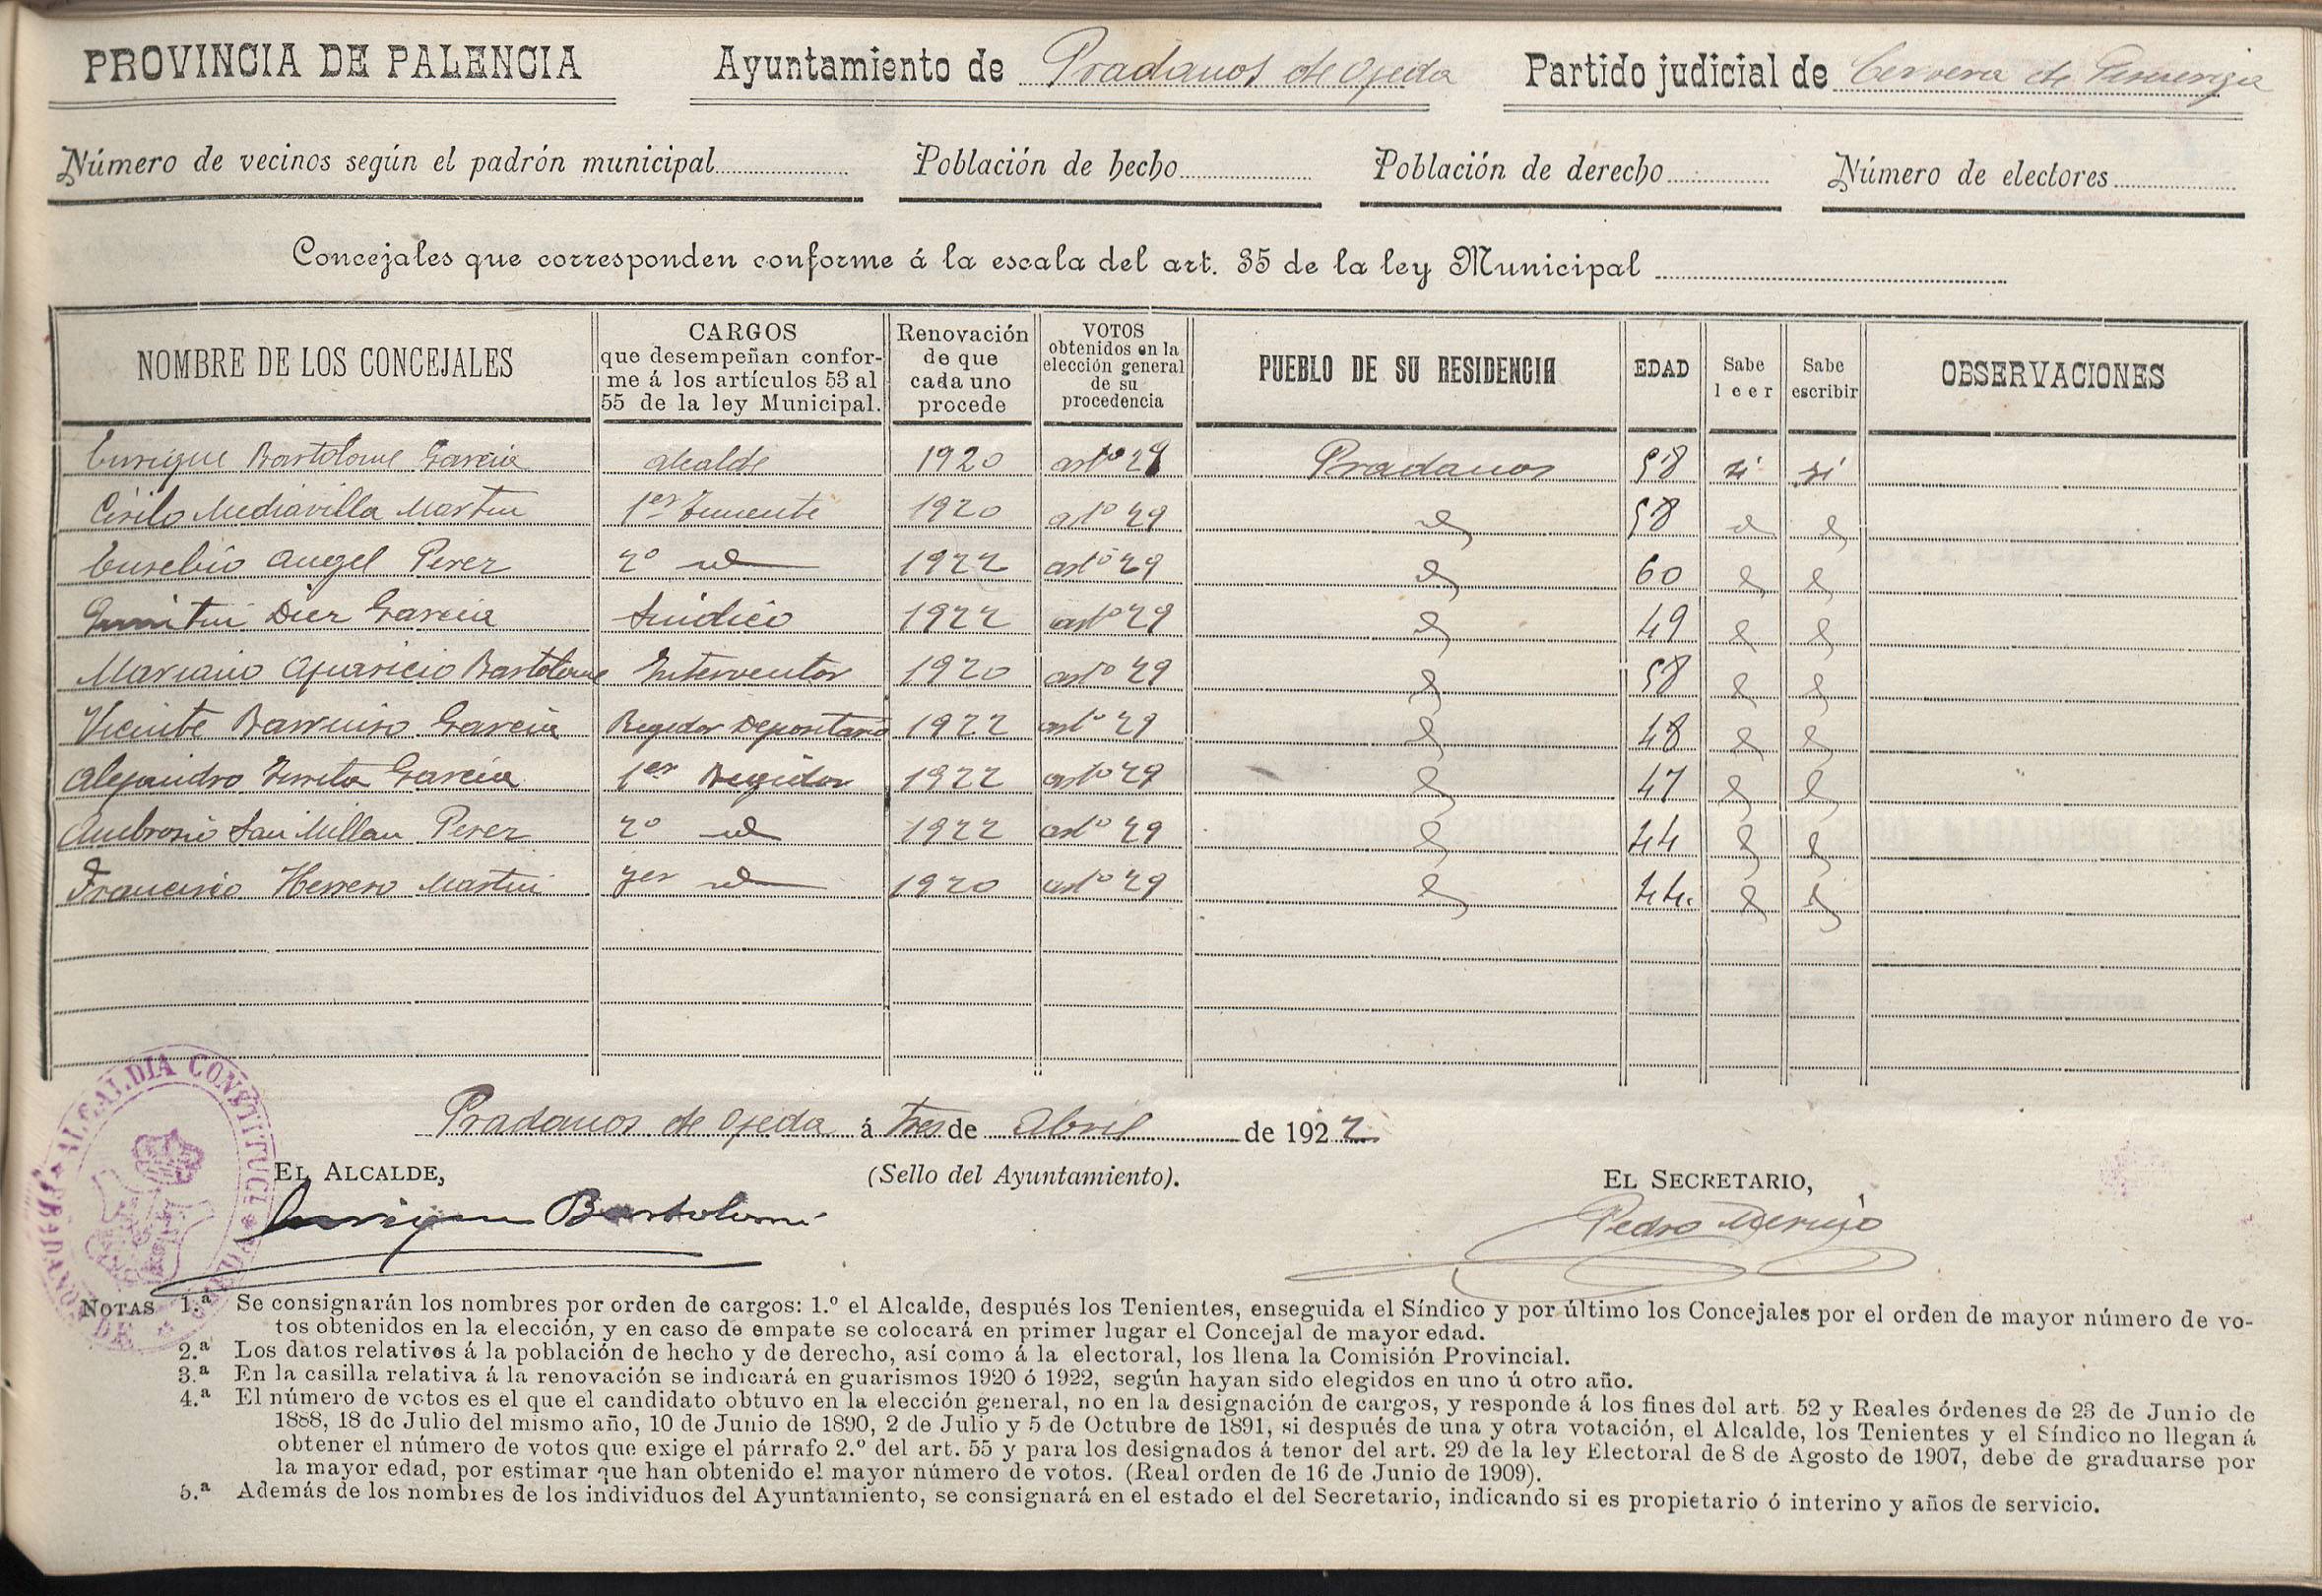 PROVINCIA DE PALENCIA Ayuntamiento de Pradanos de Ojeda Partido judicial de Cervera de Pisuerga
Número de vecinos según el padrón municipal Población de hecho Población de derecho Número de electores
Concejales que corresponden conforme á la escala del art. 35 de la ley Municipal
NOMBRE DE LOS CONCEJALES CARGOS que desempeñan confor-me á los artículos 53 al 55 de la ley Municipal. Renovación de que cada uno procede VOTOS obtenidos en la elección general de su procedencia PUEBLO DE SU RESIDENCIA EDAD Sabe leer Sabe escribir OBSERVACIONES
Enrique Bartolome Garcia alcalde 1920 artº 29 Pradanos 58 si si
Cirilo Mediavilla Martin 1er Teniente 1920 artº 29 id 58 id id
Eusebio Angel Perez 2º id 1922 artº 29 id 60 id id
Quintin Diez Garcia Sindico 1922 artº 29 id 49 id id
Mariano Aparicio Bartolome Interventor 1920 artº 29 id 58 id id
Vicente Barruiso Garcia Regidor Depositario 1922 artº 29 id 48 id id
Alejandro Garcia 1er Regidor 1922 artº 29 id 47 id id
Ambrosio San Millan Perez 2º id 1922 artº 29 id 44 id id
Francisco Herrero Martin 3er id 1920 artº 29 id 44. id id
Pradanos de Ojeda á tres de Abril de 1922
EL ALCALDE, (Sello del Ayuntamiento). EL SECRETARIO,
Enrique Bartolomé Pedro Merino
ALCALDIA CONSTITUCL * DE PRADANOS DE OJEDA *
NOTAS 1.ª Se consignarán los nombres por orden de cargos: 1.º el Alcalde, después los Tenientes, enseguida el Síndico y por último los Concejales por el orden de mayor número de vo-
tos obtenidos en la elección, y en caso de empate se colocará en primer lugar el Concejal de mayor edad.
2.ª Los datos relativos á la población de hecho y de derecho, así como á la electoral, los llena la Comisión Provincial.
3.ª En la casilla relativa á la renovación se indicará en guarismos 1920 ó 1922, según hayan sido elegidos en uno ú otro año.
4.ª El número de votos es el que el candidato obtuvo en la elección general, no en la designación de cargos, y responde á los fines del art. 52 y Reales órdenes de 23 de Junio de
1888, 18 de Julio del mismo año, 10 de Junio de 1890, 2 de Julio y 5 de Octubre de 1891, si después de una y otra votación, el Alcalde, los Tenientes y el Síndico no llegan á
obtener el número de votos que exige el párrafo 2.º del art. 55 y para los designados á tenor del art. 29 de la ley Electoral de 8 de Agosto de 1907, debe de graduarse por
la mayor edad, por estimar que han obtenido el mayor número de votos. (Real orden de 16 de Junio de 1909).
5.ª Además de los nombres de los individuos del Ayuntamiento, se consignará en el estado el del Secretario, indicando si es propietario ó interino y años de servicio.